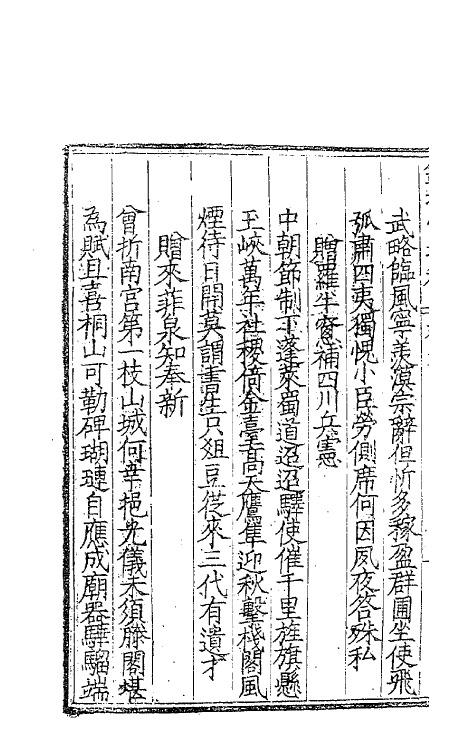 武略臨風寧羨漢宗辭但祈多稼盈群圃坐使飛
孤肅四夷獨愧小臣勞側席何因夙夜答殊私
贈羅半窗補四川兵憲
中朝節制下蓬萊蜀道迢迢驛使催千里旌旗懸
玉峽萬年社稷倚金臺高天鷹隼迎秋擊棧閣風
煙待日開莫謂書生只俎豆從來三代有遺才
贈來菲泉知奉新
曾折南宮第一枝山城何幸挹光儀未須滕閣堪
為賦且喜桐山可勒碑瑚璉自應成廟器驊騮端